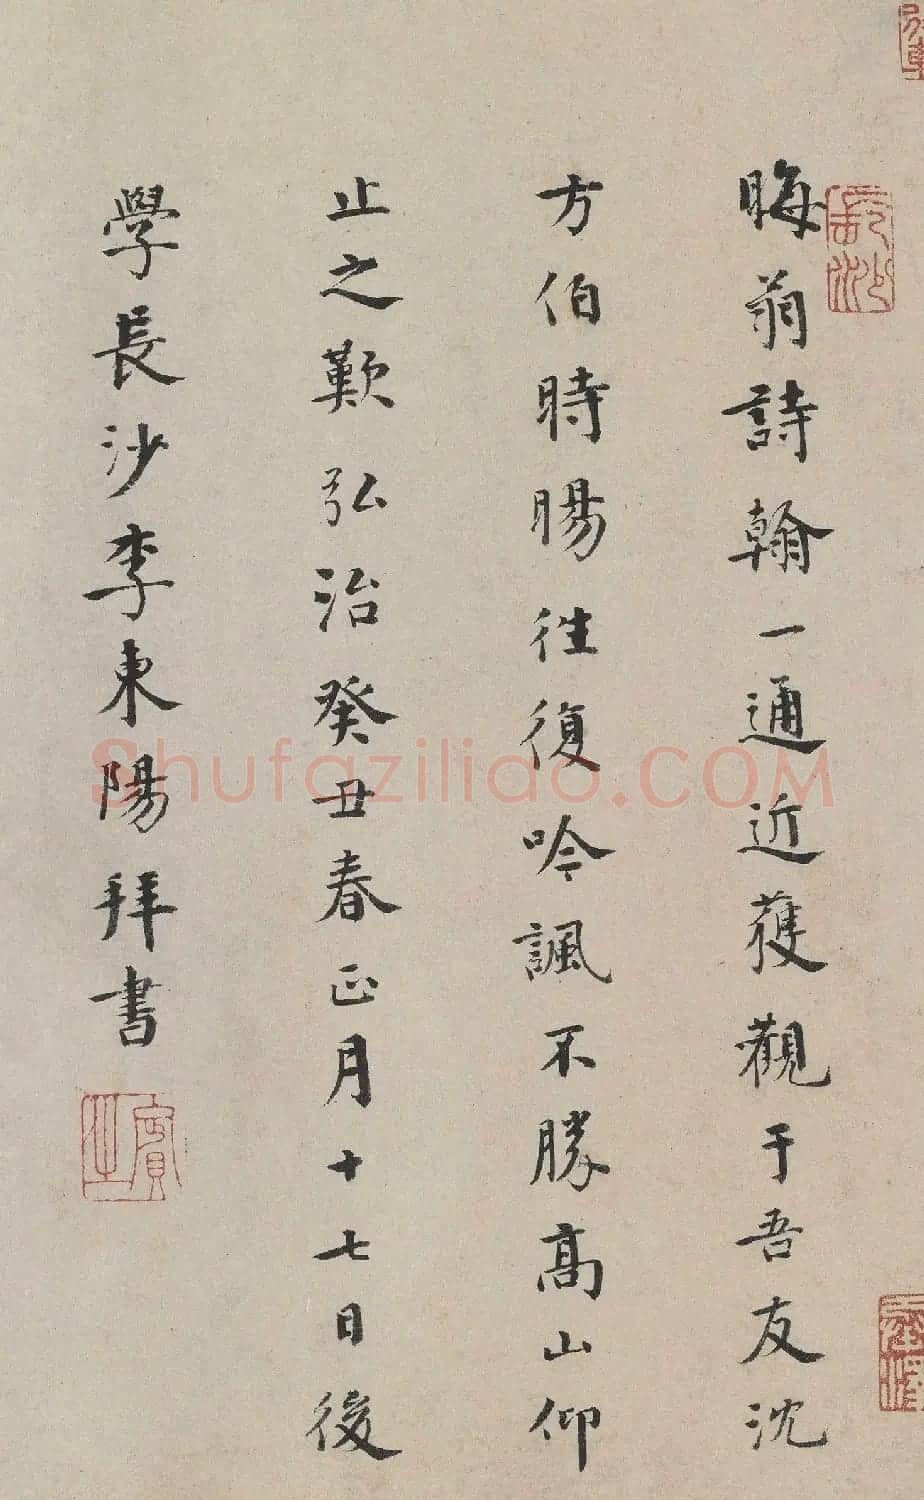 晦翁詩翰一通近獲觀于吾友沈
方伯時暘往復吟諷不勝髙山仰
止之歎弘治癸丑春正月十七日後
學長沙李東陽拜書
賓之
長沙
Shufaziliao.COM